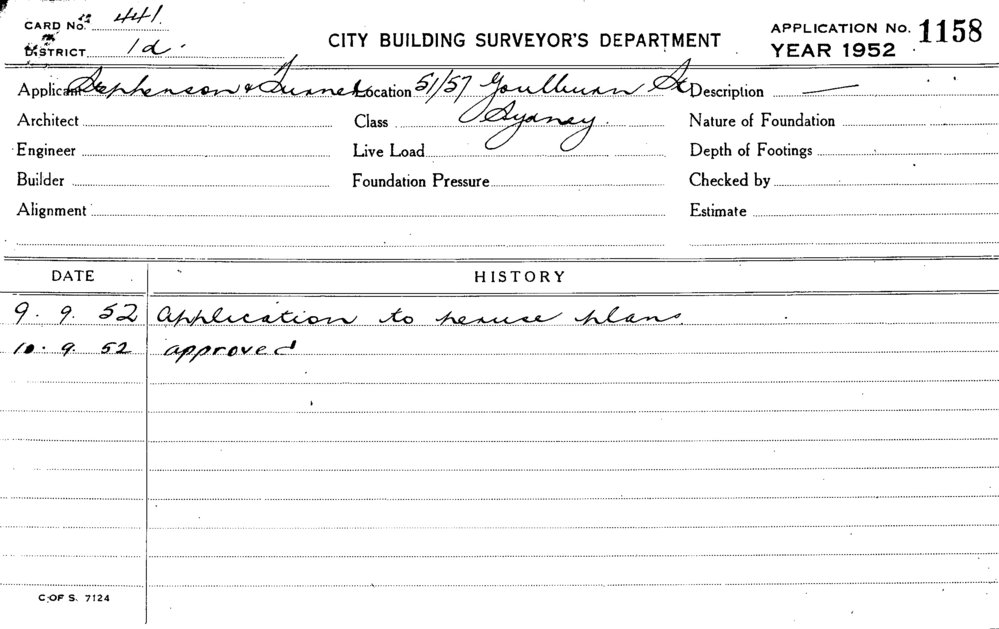 CARD No. 441.
DISTRICT 1d.
CITY BUILDING SURVEYOR'S DEPARTMENT
APPLICATION No. 1158
YEAR 1952
Applicant Stephenson & Turner Location 51/57 Goulburn St Description —
Architect Class Sydney. Nature of Foundation
Engineer Live Load Depth of Footings
Builder Foundation Pressure Checked by
Alignment Estimate
DATE HISTORY
9. 9. 52 Application to peruse plans.
10. 9. 52 approved
C OF S. 7124